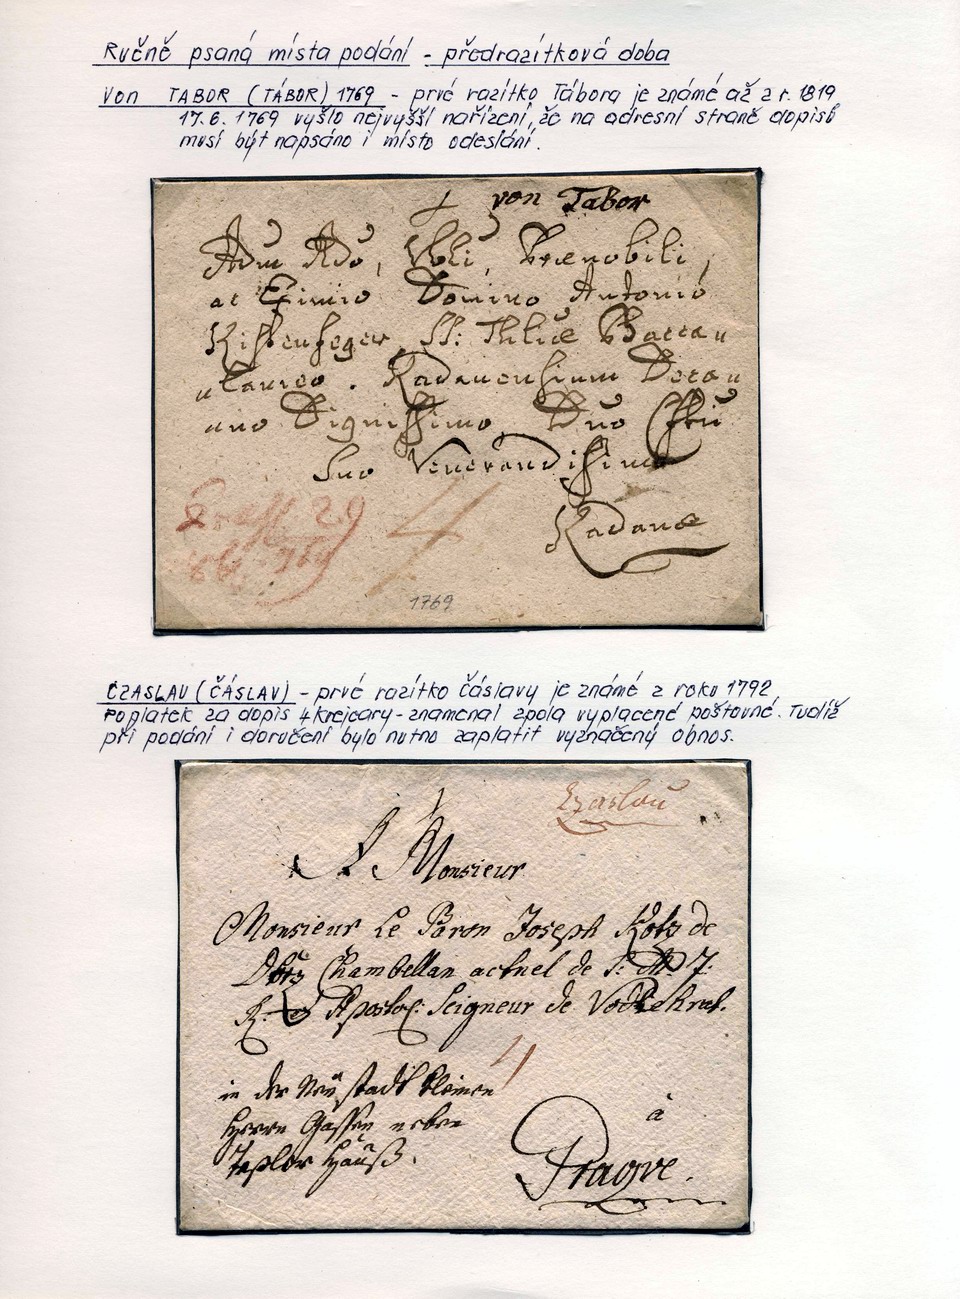 Ručně psaná místa podání - předrazítková doba
Von TABOR (TÁBOR) 1769 - prvé razítko Tábora je známé až z r. 1819
17.6. 1769 vyšlo nejvyšší nařízení, že na adresní straně dopisů
musí být napsáno i místo odeslání.
von Tabor
Praenobili
ac Eximio Domino Antonio
SS: Baccau
laureo. Kadanensium Decau
ano Dignissimo Dño
Suo Venerandissimo
29
4
Kadanæ
1769
CZASLAU (ČÁSLAV) - prvé razítko čáslavy je známé z roku 1792
Poplatek za dopis 4 krejcary - znamenal zpola vyplacené poštovné. Tudíž
při podání i doručení bylo nutno zaplatit vyznačený obnos.
Czaslau
A Monsieur
Monsieur Le Baron Joseph Kotz de
Chambellan actuel de S: M: J:
R: Apostol: Seigneur de
4
in der Neüstadt kleinen
Herrn Gassen neben
Hauß.
à
Prague.